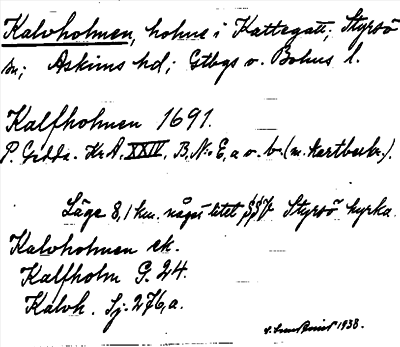 Kalvholmen, holme i Kattegatt; Styrsö
sn; Askims hd; Gtbgs o. Bohus l.
Kalfholmen 1691.
P. Gedda. Kr.A. XXIV, B, N:o E, a o. b. (m. kartbeskr.).
Läge 8,1 km. något litet Styrsö kyrka.
Kalvholmen ek.
Kalfholm G. 24.
Kalvh. Sj. 276, a.
1938.